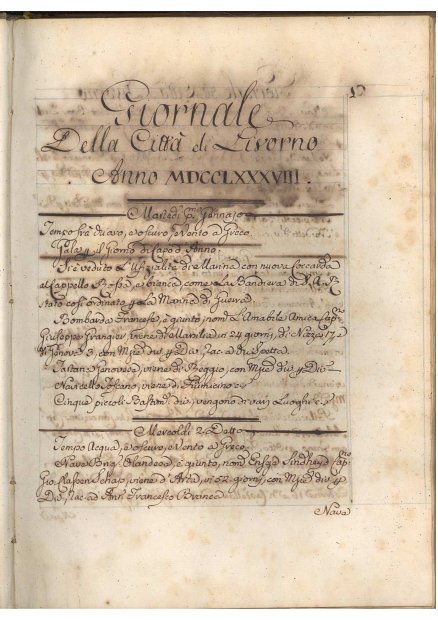 Giornale
Della Città di Livorno
Anno MDCCLXXXVIII.
Martedì p.mo Gennajo
Tempo frà Chiaro, e oscuro, e Vento a Greco
Gala p. il Giorno di Capo d'Anno
Si è veduto l'Ufizialità di Marina con nuova Coccarda
al Cappello Rossa, e bianca, come la Bandiera di S.A.R.
stato così ordinato p. la Marina di Guerra
Bombarda Francese, è giunto, nom. L'Amabile Amica, Cap.
Giuseppe Grangier, viene di Marsilia in 24 giorni, di Nizza 17, e
Genova 3, con Mjze div. p. Div.
Tartana Genovese, viene di Reggio, con Mjze div. p. Div.
Navicello Toscano, viene di Fiumicino
Cinque piccoli Bastim. div., vengono di varj Luoghi
Mercoldì 2. Detto
Tempo Acqua, e oscuro, e Vento a Greco
Nave Olandese, è giunto, nom.
Gio., viene d' in 52 giorni, con Mjze div. p.
Div., rac. ad Ant. Francesco
Nave